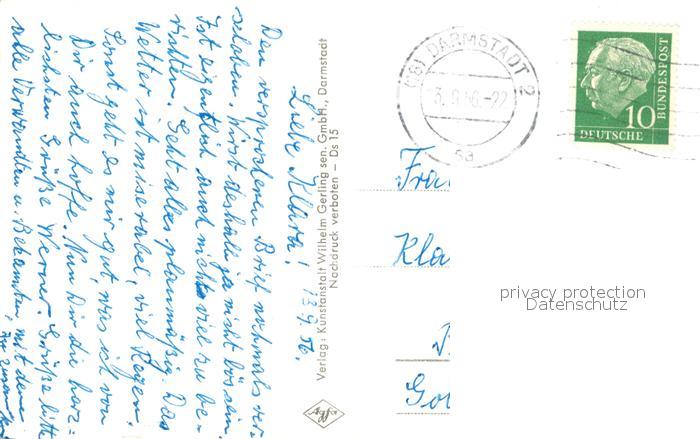 13.9.56.
Liebe Klara!
Den versprochenen Brief nochmals ver-
schoben. Wirst deshalb ja nicht böse sein.
Ist eigentlich auch nichts viel zu be-
richten. Geht alles planmäßig. Das
Wetter ist miserabel, viel Regen.
Sonst geht es mir gut, was ich von
Dir auch hoffe. Nun Dir die herz=
lichsten Grüße Werner. Grüße bitte
alle Verwandten u. Bekannten, mit denen
Du zusammen
Verlag: Kunstanstalt Wilhelm Gerling sen. GmbH., Darmstadt
Nachdruck verboten – Ds 15
Agfa
(16) DARMSTADT 2
13.9.56.-22
sa
10
DEUTSCHE
BUNDESPOST
Frau
Kla
Go
privacy protection
Datenschutz